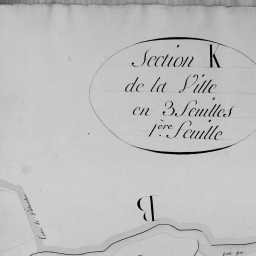 Section K
de la Ville
en 3 Feuilles
1ère Feuille
B